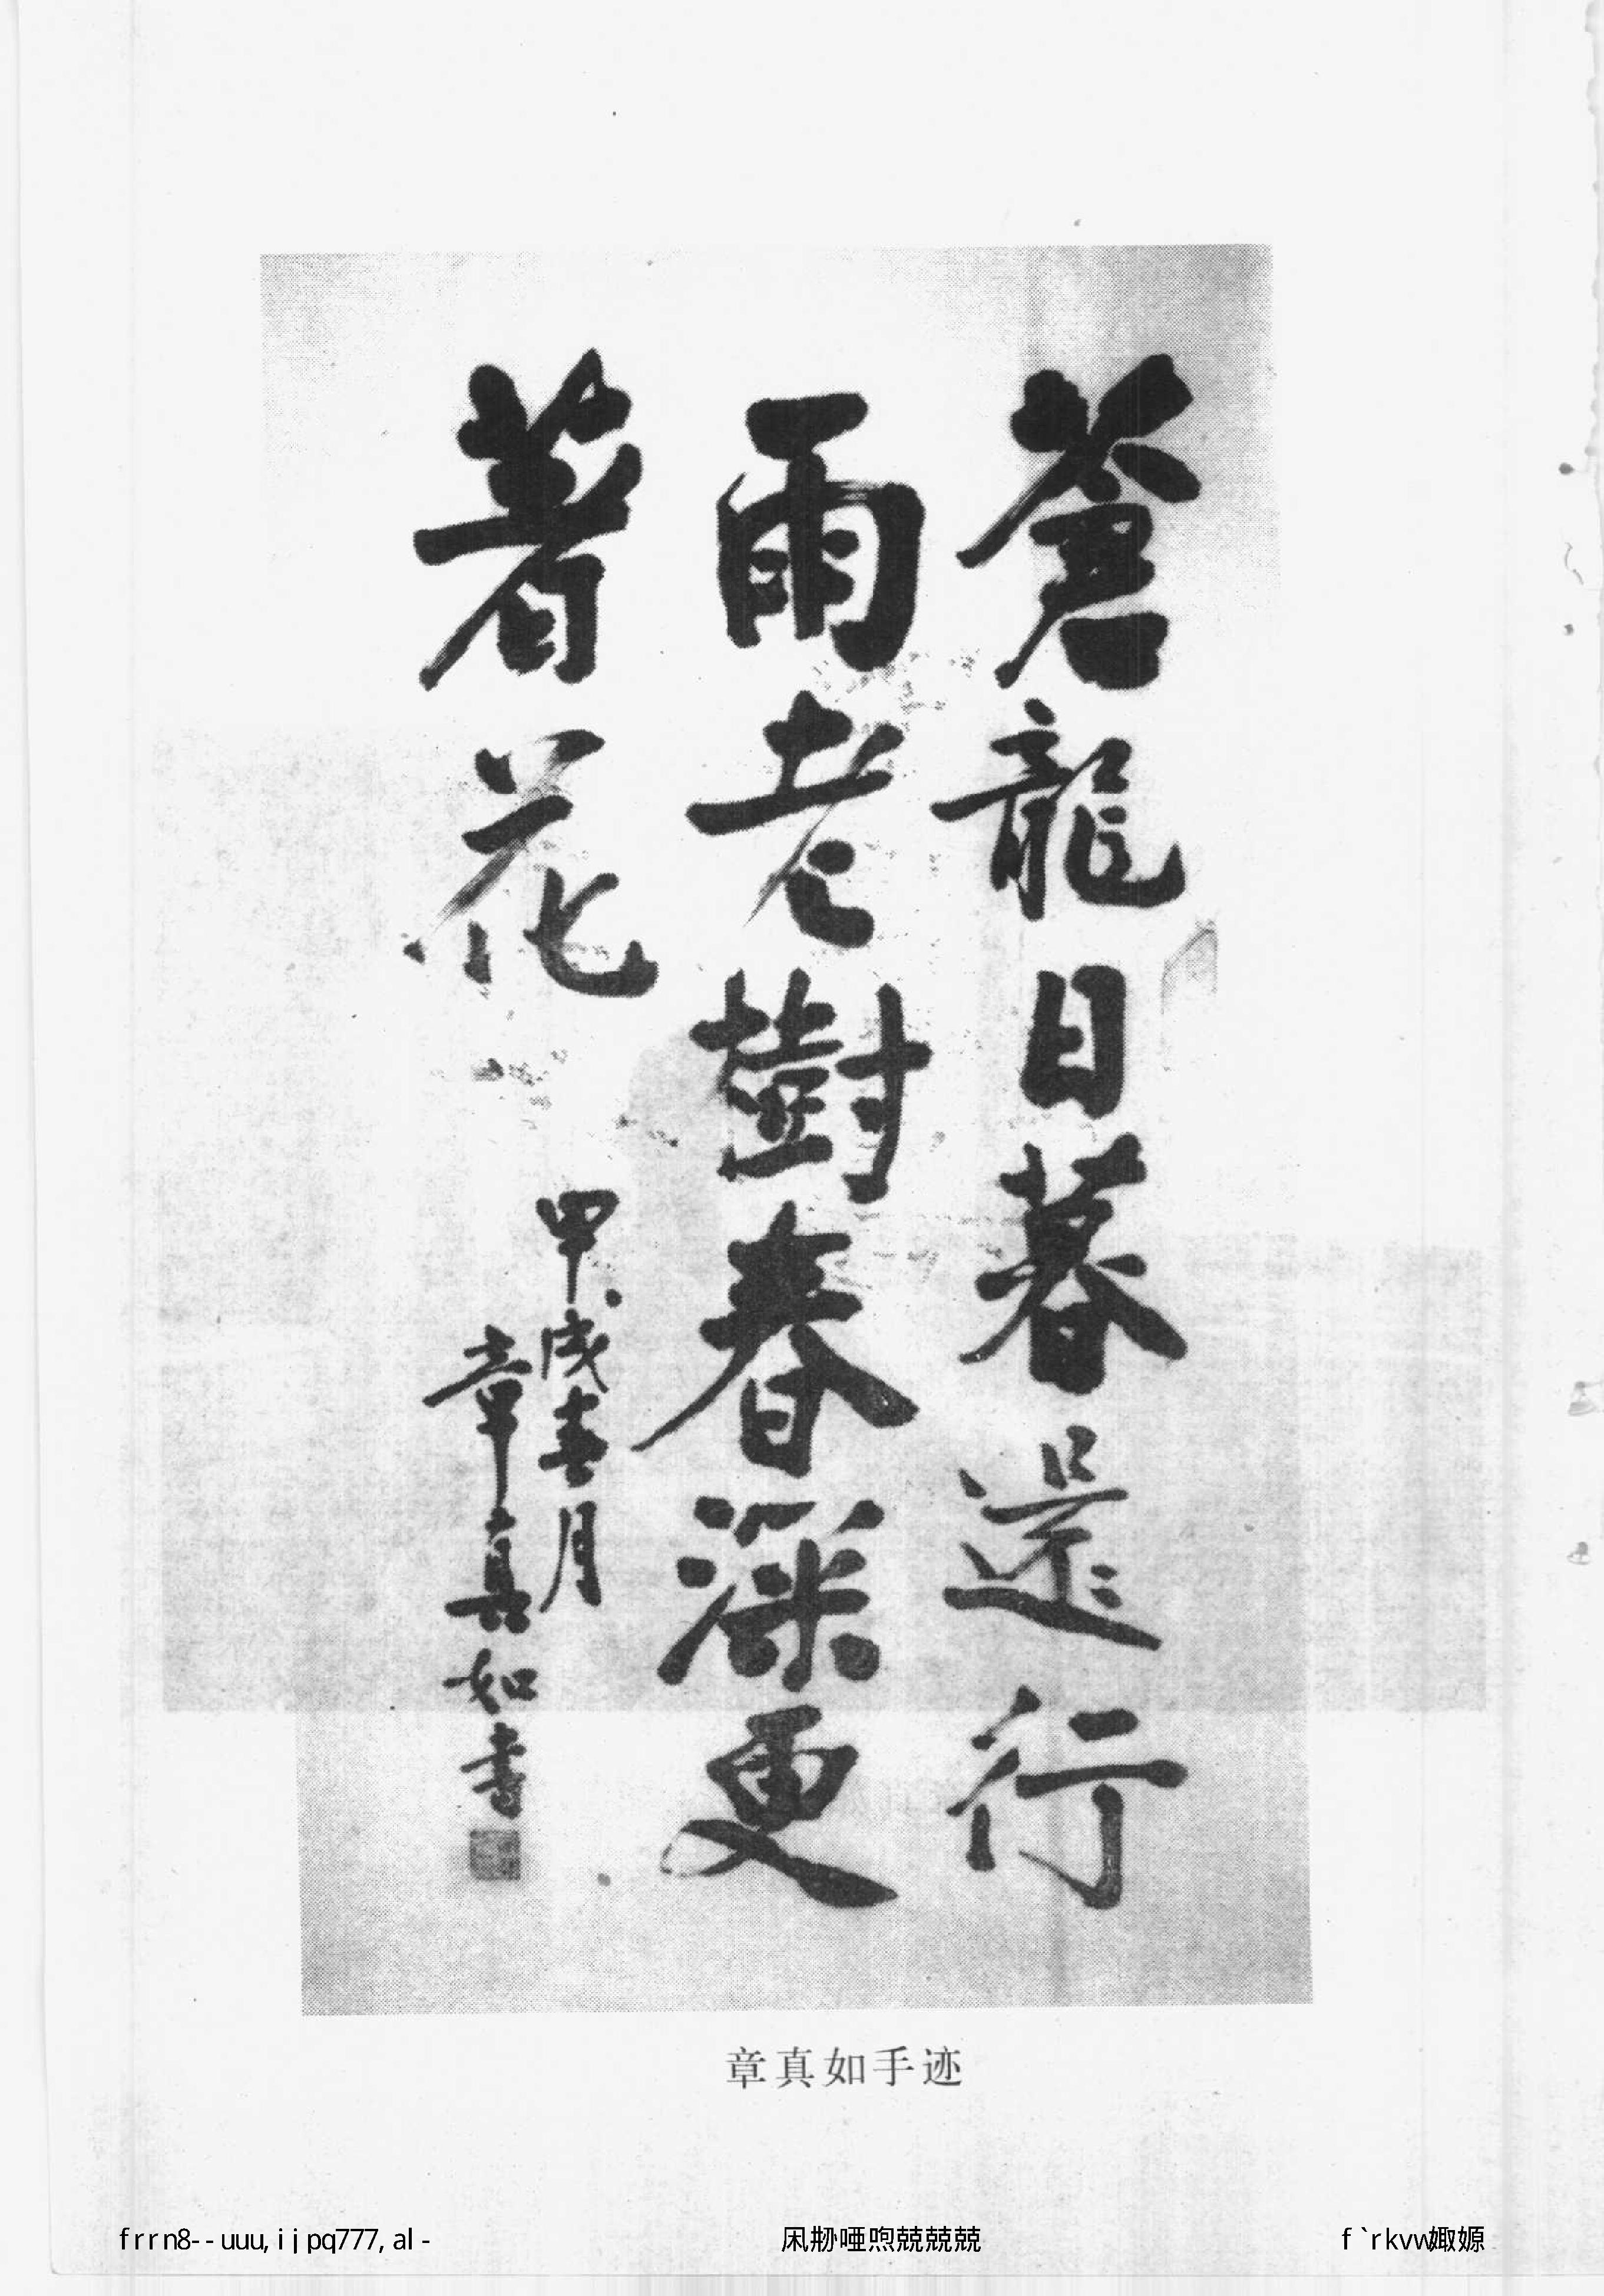 蒼龍日暮還行
雨老樹春深更
著花
甲戌春月
章真如書
章真如手迹
frrn8--uuu,ijpq777,al-
f`rkvw娵嫄